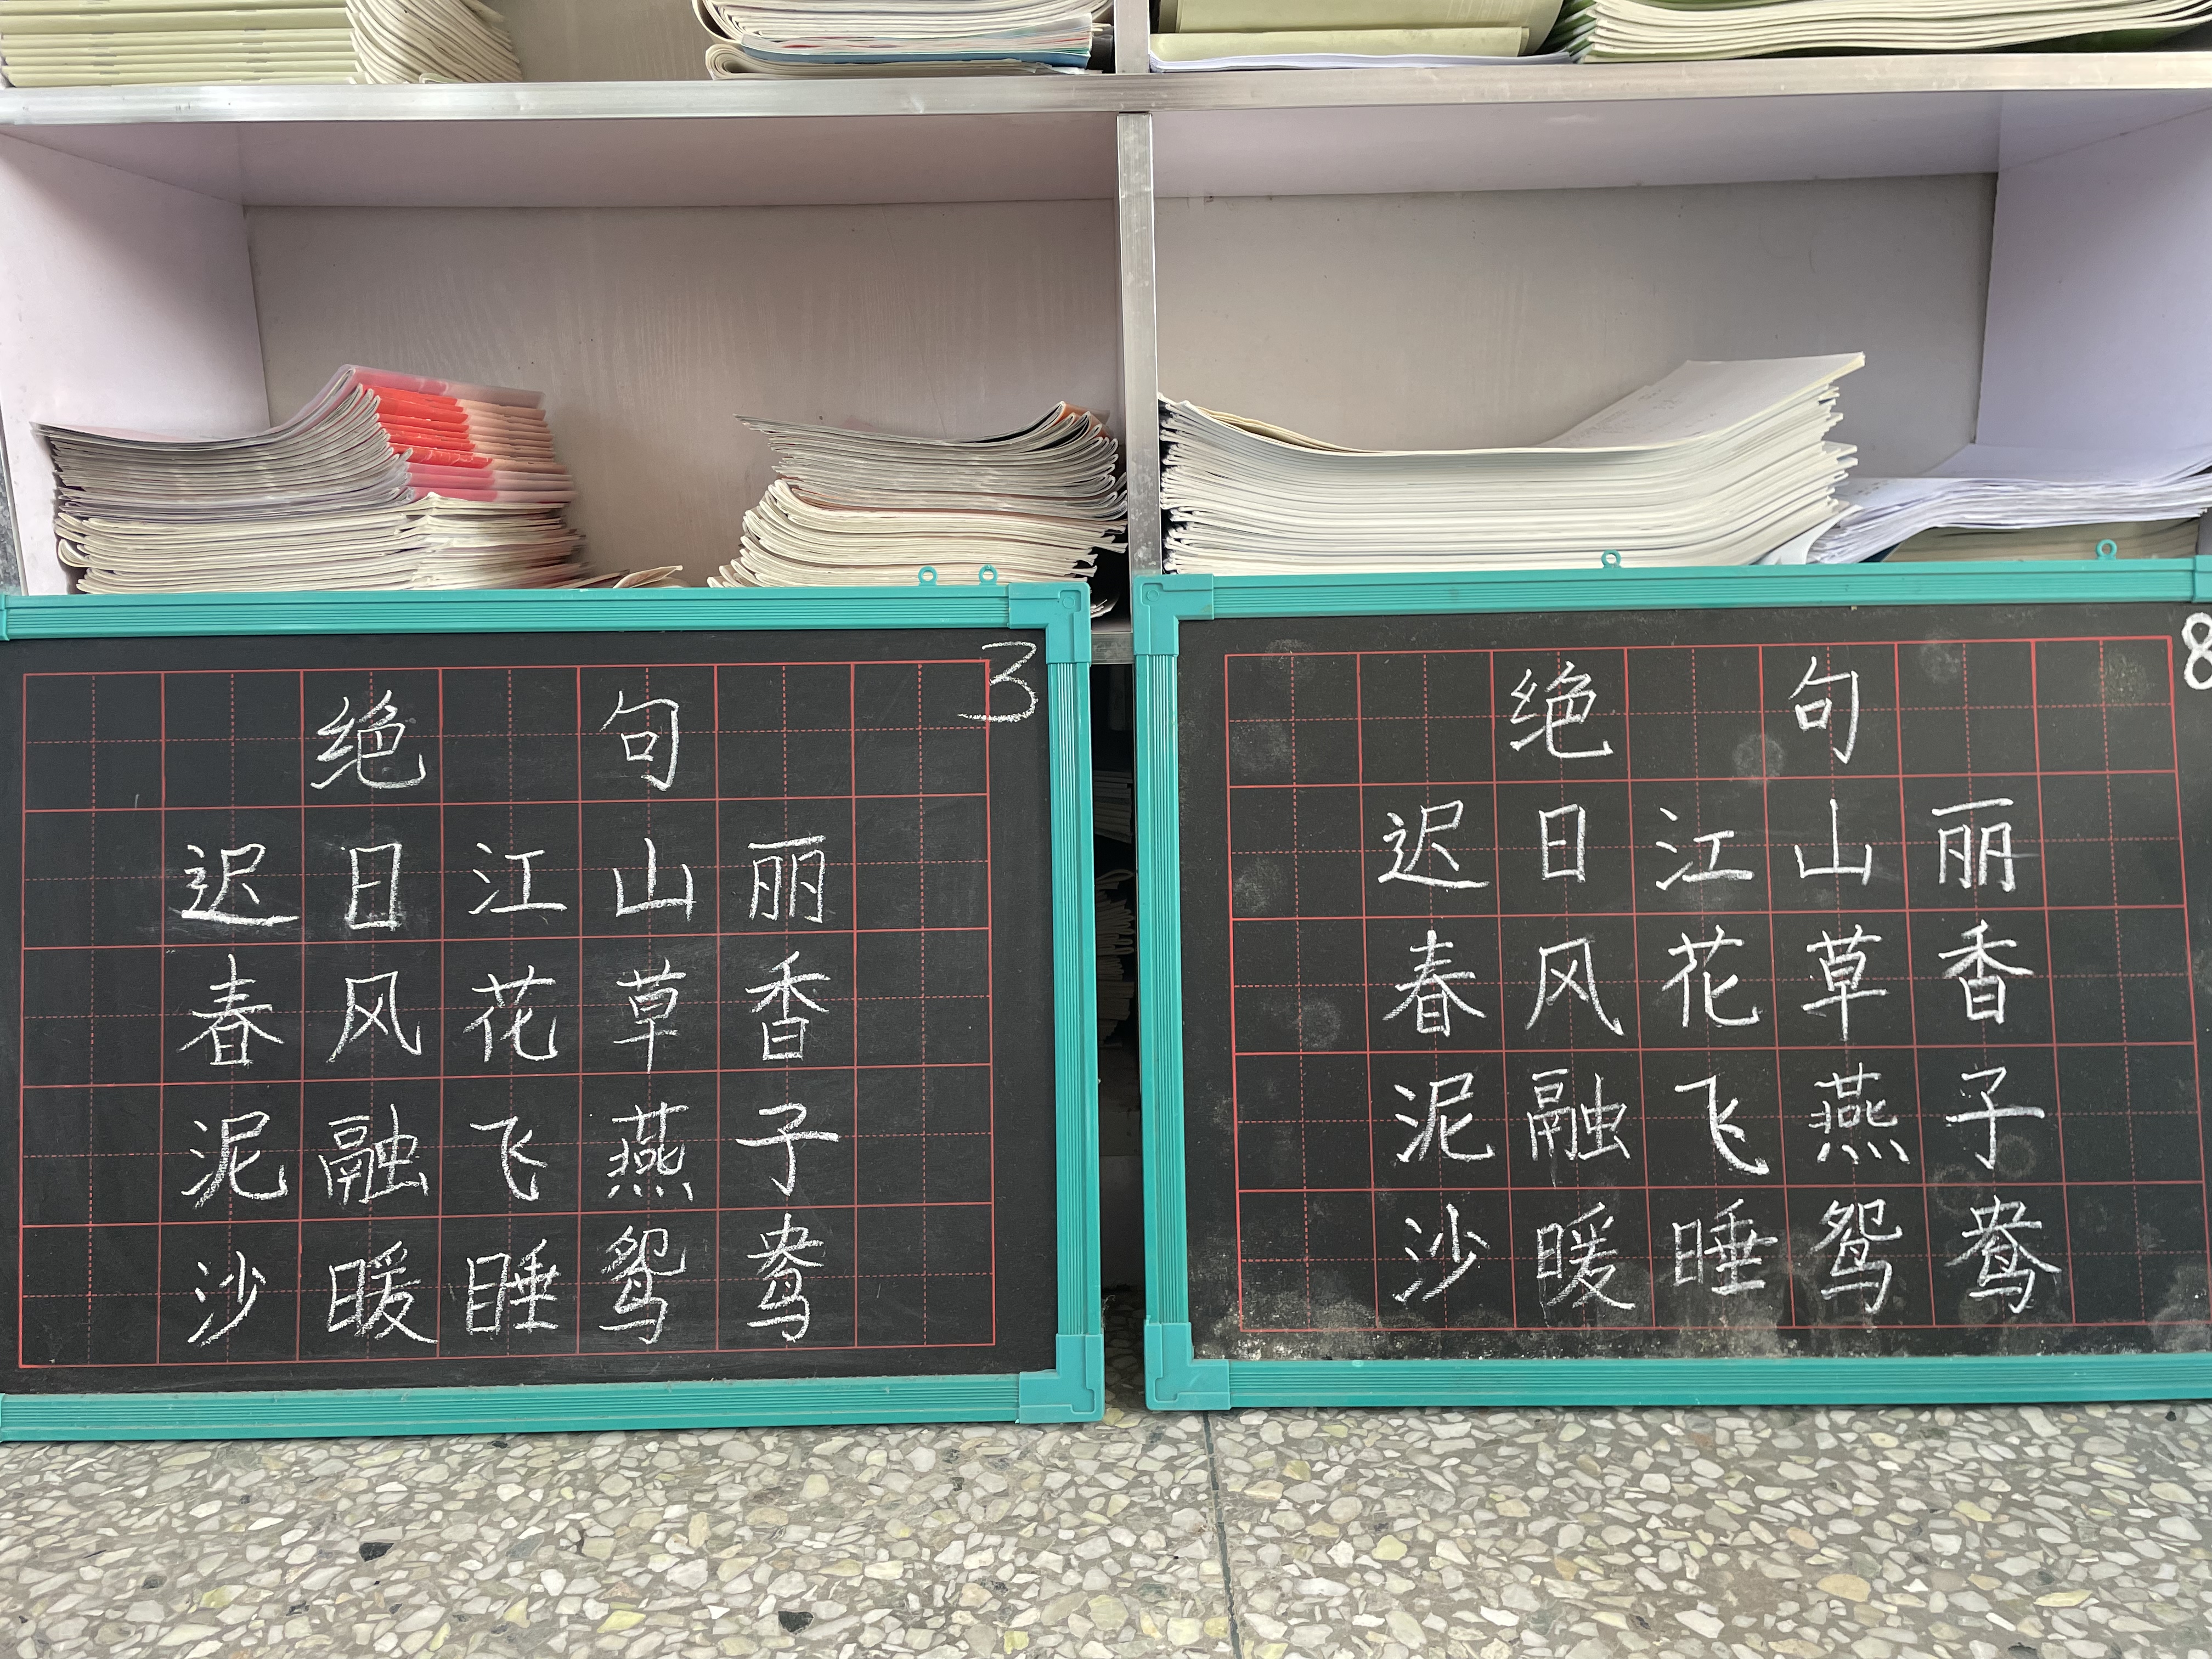 3
绝句
迟日江山丽
春风花草香
泥融飞燕子
沙暖睡鸳鸯
8
绝句
迟日江山丽
春风花草香
泥融飞燕子
沙暖睡鸳鸯